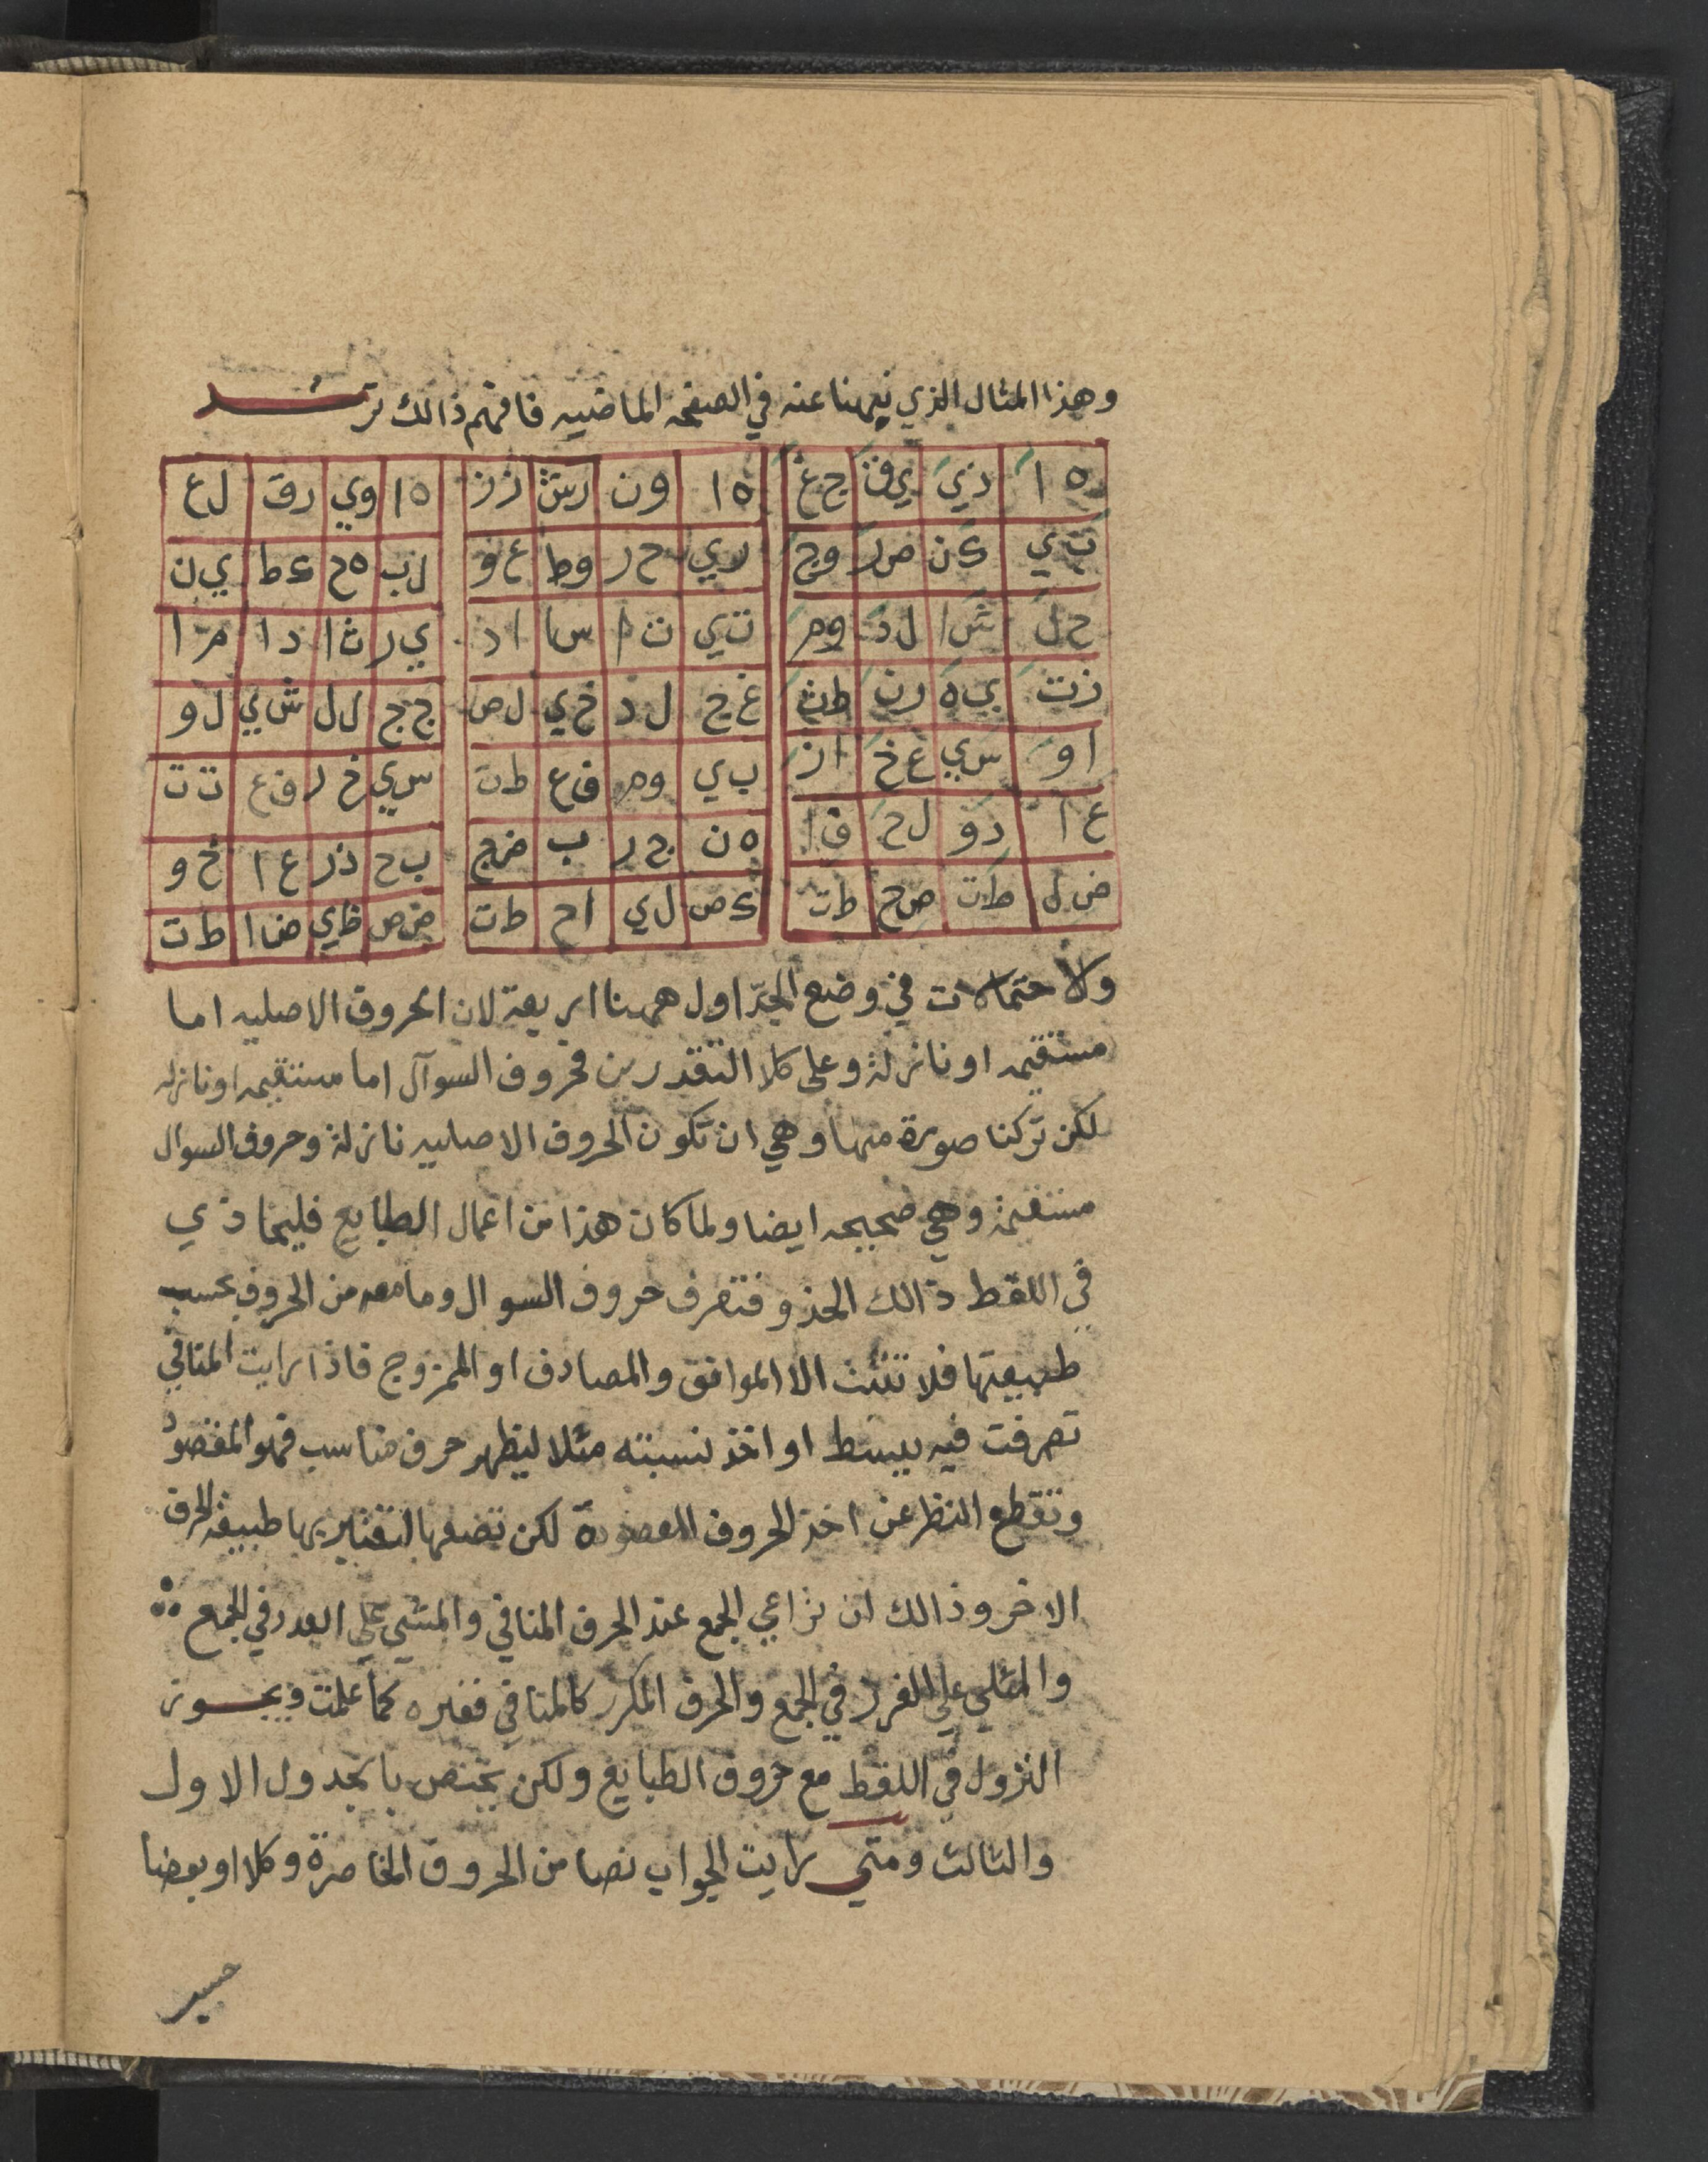 وهذا المثال الذي نبهنا عنه في الصفحه الماضيه فافهم ذالك ترشد
ه ا | ذي | ي ق | ج غ | ه ا | ون | رش | زز | ه ا | وي | رق | ل ع
ت ي | ء ن | ص ر | وج | ري | ح ر | وط | ع و | ل ب | ه ح | ء ط | ي ن
ح ل | ش ا | ل د | وم | ت ي | ت ا | س ا | ا د | ي ر | ث ا | د ا | م ا
ز ت | ي ه | ر ن | ط ث | غ ج | ل د | خ ي | ل ص | ج ج | ل ل | ش ي | ل و
ا و | س ي | ع خ | ا ز | ب ي | وم | ق ع | ط ت | س ي | خ ر | ق ع | ت ت
ع ا | د و | ل ح | ق ا | ه ن | ج ر | ب | ض ج | ب ح | ذ ر | ع ا | خ و
ض ل | ط ت | ص ح | ط ت | ء ص | ل ي | ا ح | ط ت | ض ص | ظ ي | ض ا | ط ت
والاحتمالات في وضع الجداول ههنا اربعة لان الحروف الاصليه اما
مستقيمه او نازلة وعلى كلا التقدرين فحروف السوآل اما مستقيمه او نازله
لكن تركنا صورة منها وهي ان تكون الحروف الاصليه نازلة وحروف السوال
مستقيمة وهي صحيحه ايضا ولما كان هذا من اعمال الطبايع فليحاذي
في اللقط ذالك الحذو فتصرف حروف السوال وما معه من الحروف بحسب
طبيعتها فلا تثبت الا الموافق والمصادف او الممزوج فاذا رايت المنافي
تصرفت فيه ببسط او اخذ نسبته مثلا ليظهر حرف مناسب فهو المقصود
وتقطع النظر عن اخذ الحروف المعصودة لكن تضعها لتعتبر بها طبيعة الحرف
الاخر وذالك ان تراعي الجمع عند الحرف المنافي والمشي علي العدد في الجمع
والمثلي علي الفرد في الجمع والحرف المكرر كالمنافي فغيره كما علمت ويجوز
النزول في اللقط مع حروف الطبايع ولكن يختص بالجدول الاول
والثالث ومتي رايت الجواب نصا من الحروف الخاصرة وكلا او بعضا